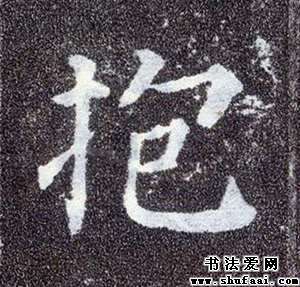 抱
书法爱网
www.shufaai.com